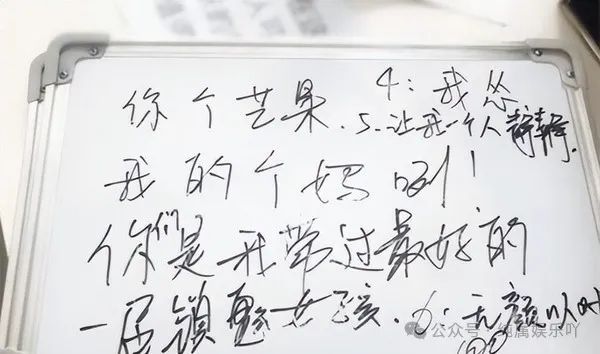 你个芒果. 4: 我怂
5. 让我一个人静静.
我的个妈呀!
你们是我带过最好的
一届镇魂女孩. 6. 无颜以对
公众号 · 纯属娱乐吖